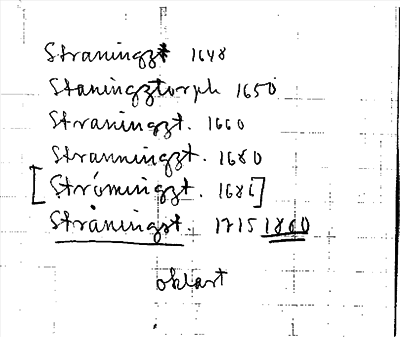 Straningzt 1648
Staningztorph 1650
Straningzt. 1660
Stranningzt. 1680
[Strömingzt. 1686]
Stråningst. 1715 1860
oklart